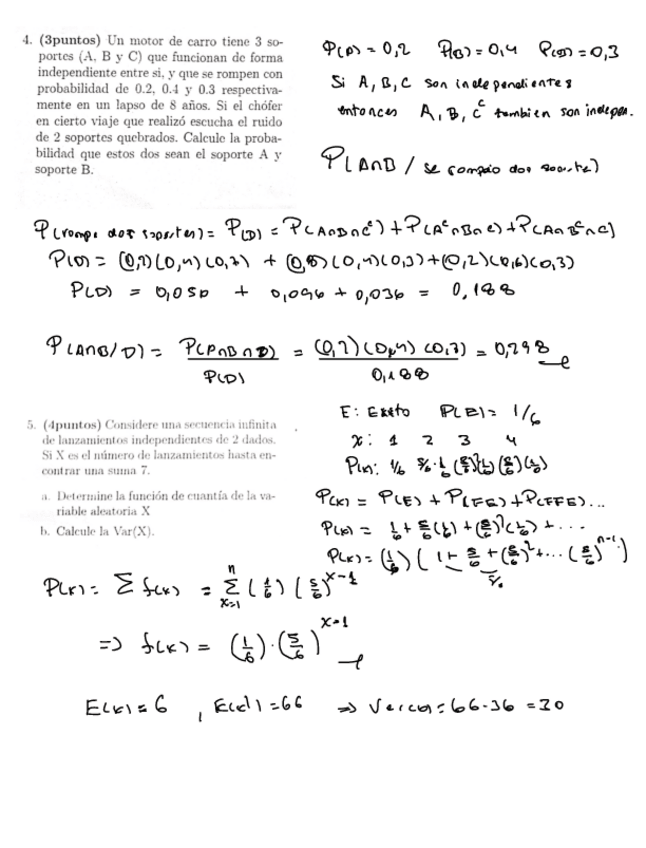 4. (3puntos) Un motor de carro tiene 3 so-
portes (A, B y C) que funcionan de forma
independiente entre si, y que se rompen con
probabilidad de 0.2, 0.4 y 0.3 respectiva-
mente en un lapso de 8 años. Si el chófer
en cierto viaje que realizó escucha el ruido
de 2 soportes quebrados. Calcule la proba-
bilidad que estos dos sean el soporte A y
soporte B.
P(A) = 0,2 P(B) = 0,4 P(C) = 0,3
Si A, B, C son independientes
entonces A, B, C^c tambien son indepen.
P(A∩B / se rompio dos soporte)
P(rompe dos soportes) = P(D) = P(A∩B∩C^c) + P(A^c∩B∩C) + P(A∩B^c∩C)
P(D) = (0,2)(0,4)(0,7) + (0,8)(0,4)(0,3) + (0,2)(0,6)(0,3)
P(D) = 0,056 + 0,096 + 0,036 = 0,188
P(A∩B/D) = P(A∩B∩D) / P(D) = (0,2)(0,4)(0,7) / 0,188 = 0,298
5. (4puntos) Considere una secuencia infinita
de lanzamientos independientes de 2 dados.
Si X es el número de lanzamientos hasta en-
contrar una suma 7.
a. Determine la función de cuantía de la va-
riable aleatoria X
b. Calcule la Var(X).
E: Exito P(E) = 1/6
x: 1 2 3 4
P(x): 1/6 5/6·1/6 (5/6)²(1/6) (5/6)³(1/6)
P(x) = P(E) + P(FE) + P(FFE)...
P(x) = 1/6 + 5/6(1/6) + (5/6)²(1/6) + ...
P(x) = (1/6)(1 + 5/6 + (5/6)² + ... (5/6)^{n-1})
P(x) = Σ f(x) = Σ_{x=1}^{n} (1/6)(5/6)^{x-1}
=> f(x) = (1/6)·(5/6)^{x-1}
E(x) = 6 , E(x²) = 66 => Var(x) = 66-36 = 30